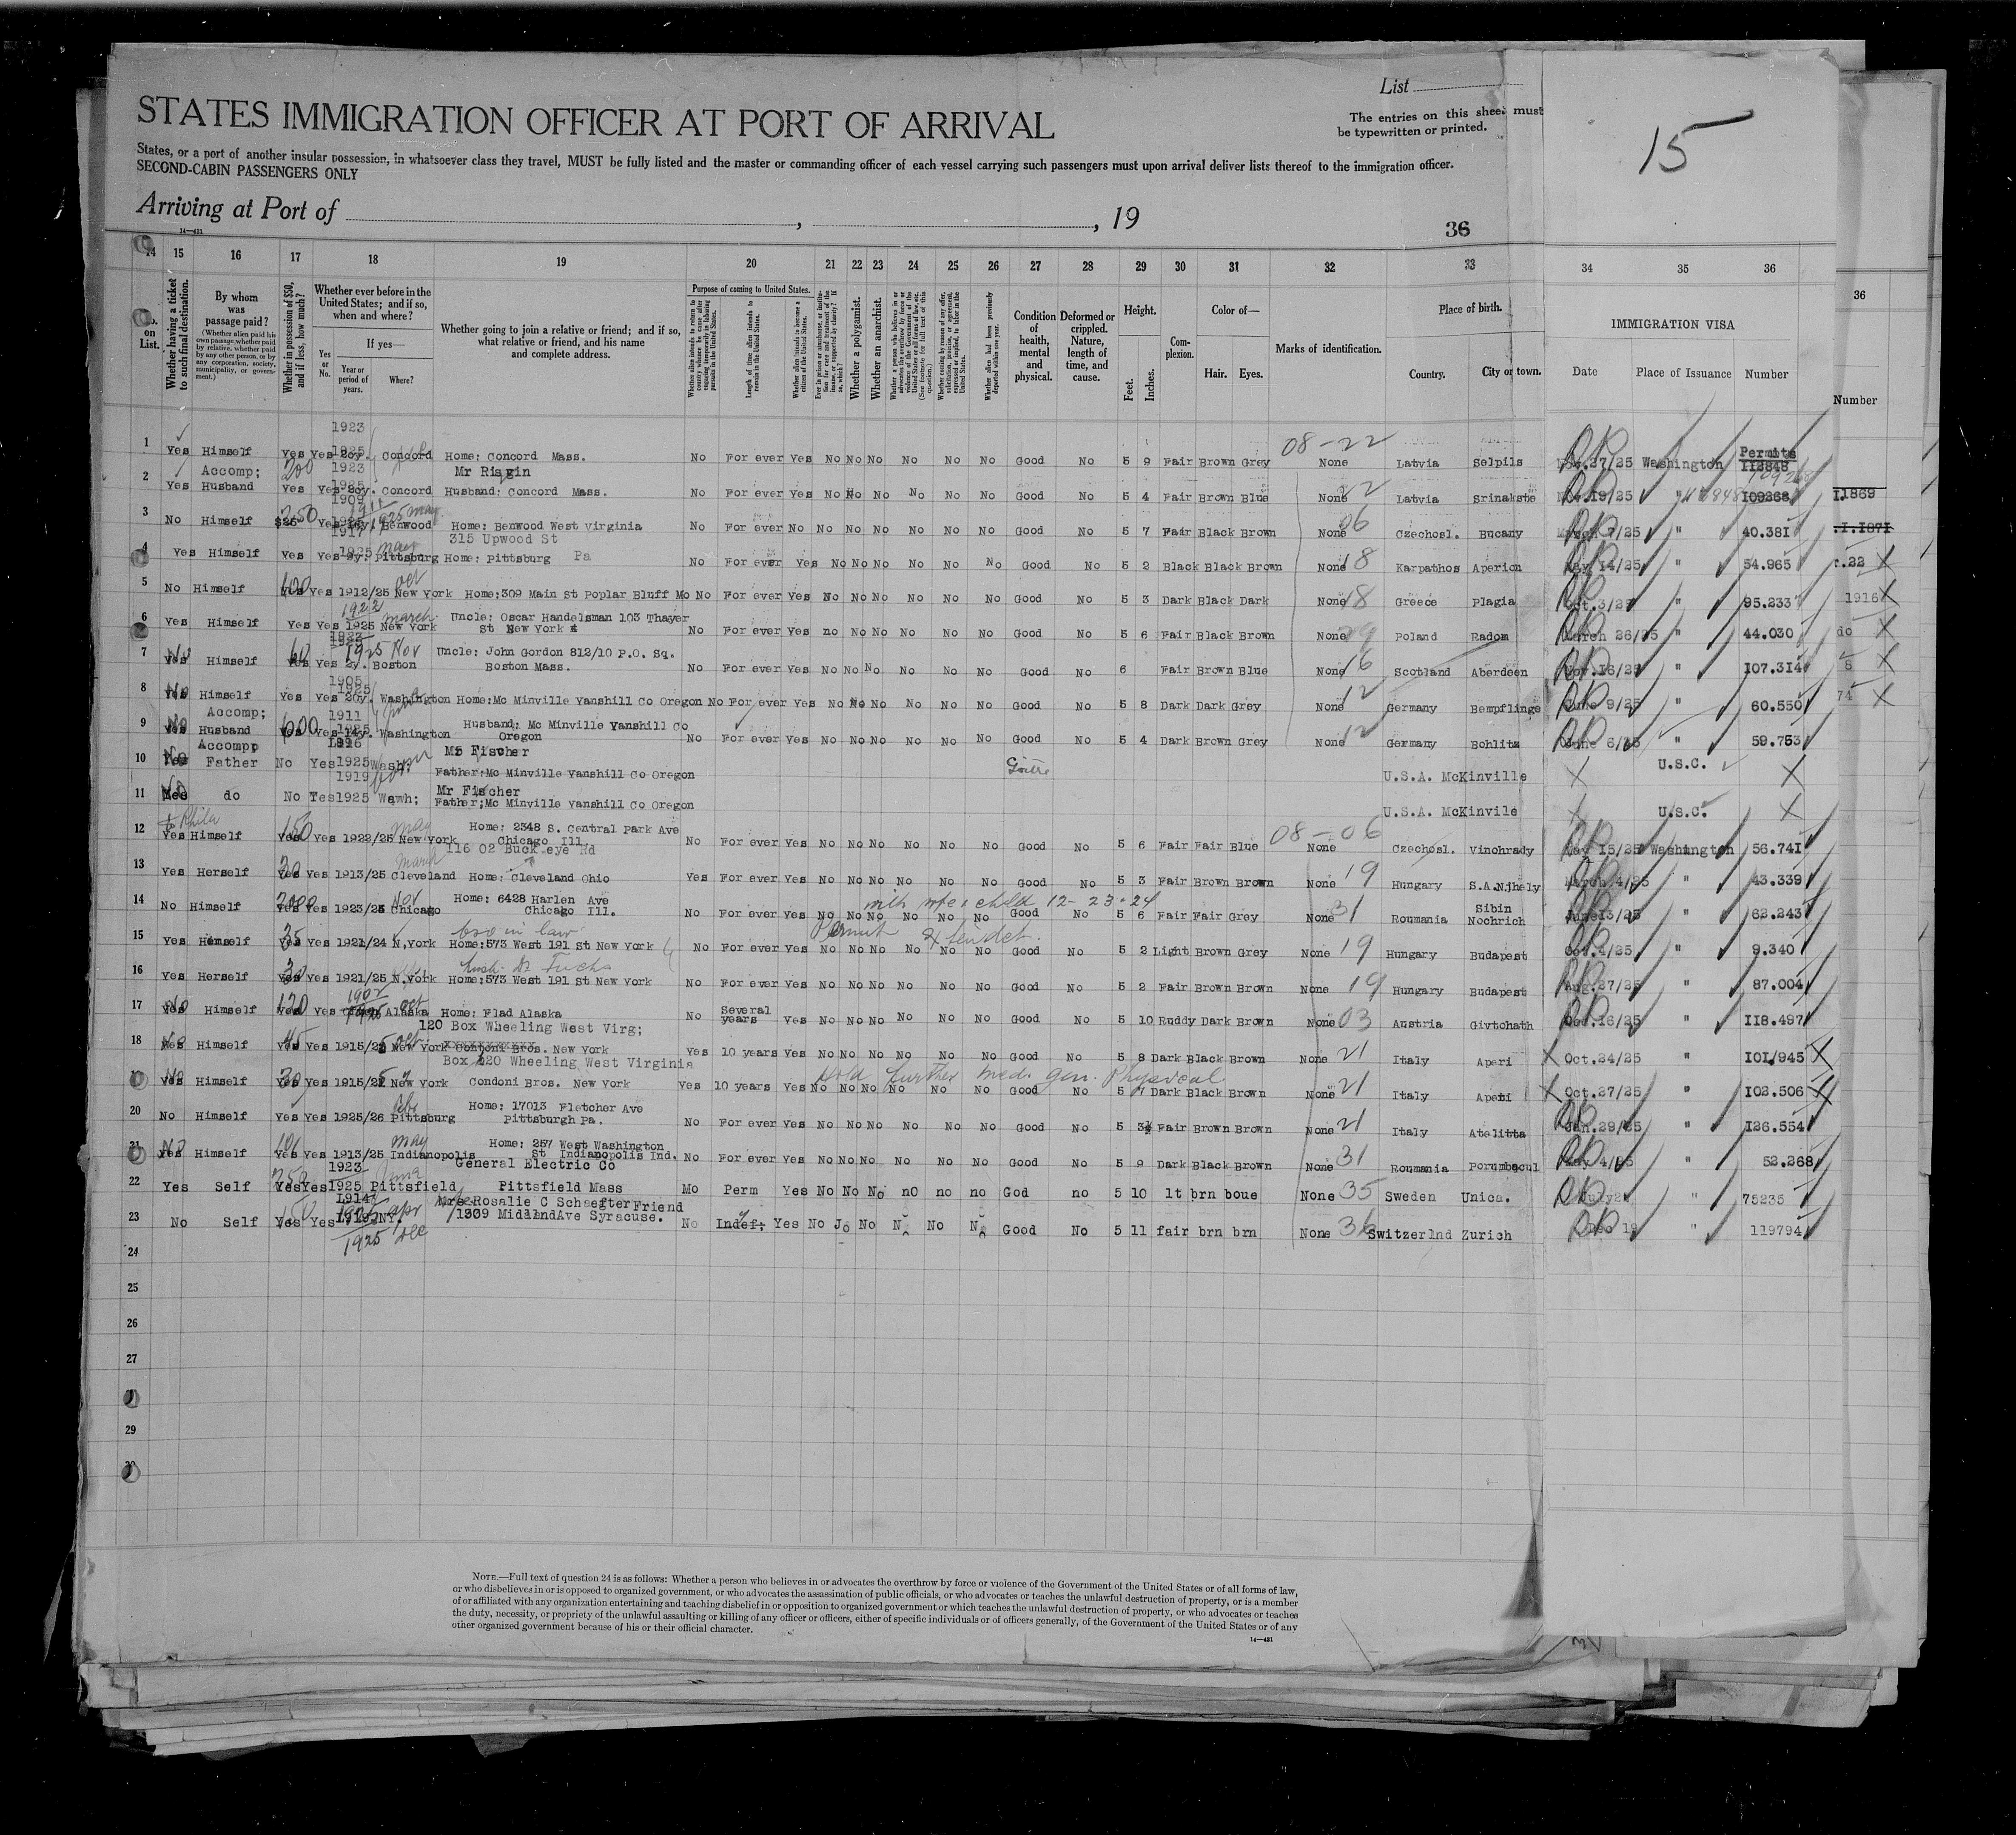 List
STATES IMMIGRATION OFFICER AT PORT OF ARRIVAL
The entries on this sheet must
be typewritten or printed.
15
States, or a port of another insular possession, in whatsoever class they travel, MUST be fully listed and the master or commanding officer of each vessel carrying such passengers must upon arrival deliver lists thereof to the immigration officer.
SECOND-CABIN PASSENGERS ONLY
Arriving at Port of , , 19
36
14—421
14 15 16 17 18 19 20 21 22 23 24 25 26 27 28 29 30 31 32 33 34 35 36
36
No. on List.
Whether having a ticket to such final destination.
By whom was passage paid?
(Whether alien paid his own passage, whether paid by relative, whether paid by any other person, or by any corporation, society, municipality, or government.)
Whether in possession of $50, and if less, how much?
Whether ever before in the United States; and if so, when and where?
Yes or No.
If yes—
Year or period of years.
Where?
Whether going to join a relative or friend; and if so, what relative or friend, and his name and complete address.
Purpose of coming to United States.
Whether alien intends to return to country whence he came after engaging temporarily in laboring pursuits in the United States.
Length of time alien intends to remain in the United States.
Whether alien intends to become a citizen of the United States.
Ever in prison or almshouse, or institution for care and treatment of the insane, or supported by charity? If so, which?
Whether a polygamist.
Whether an anarchist.
Whether a person who believes in or advocates the overthrow by force or violence of the Government of the United States or all forms of law, etc. (See footnote for full text of this question.)
Whether coming by reason of any offer, solicitation, promise, or agreement, expressed or implied, to labor in the United States.
Whether alien had been previously deported within one year.
Condition of health, mental and physical.
Deformed or crippled. Nature, length of time, and cause.
Height.
Feet. Inches.
Complexion.
Color of—
Hair. Eyes.
Marks of identification.
Place of birth.
Country. City or town.
IMMIGRATION VISA
Date Place of Issuance Number
Number
1923
1 Yes Himself Yes Yes 1925 2y. Concord Home: Concord Mass. No For ever Yes No No No No No No Good No 5 9 Fair Brown Grey 08-22 None Latvia Selpils Nov.27/25 Washington Permits 112848
Accomp; 200 1923 Mr Risgin
2 Yes Husband Yes Yes 1925 2y. Concord Husband: Concord Mass. No For ever Yes No No No No No No Good No 5 4 Fair Brown Blue None 22 Latvia Srinakste Nov.19/25 " 109268 I.1869
1909
3 No Himself $25 250 Yes 1925 may Benwood Home: Benwood West virginia No For ever No No No No No No No Good No 5 7 Fair Black Brown None 06 Czechosl. Bucany March 7/25 " 40.381 .I.1871
1917 315 Upwood St
4 Yes Himself Yes Yes 1925 may Pittsburg Home: Pittsburg Pa No For ever Yes No No No No No No Good No 5 2 Black Black Brown None 18 Karpathos Aperion May 14/25 " 54.965 .22 X
5 No Himself 600 Yes 1912/25 oct New York Home:309 Main St Poplar Bluff Mo No For ever Yes No No No No No No Good No 5 3 Dark Black Dark None 18 Greece Plagia Oct.3/25 " 95.233 1916 X
1922 Uncle: Oscar Handelsman 103 Thayer
6 Yes Himself Yes Yes 1925 march New York St New York No For ever Yes no No No No No No Good No 5 6 Fair Black Brown None 29 Poland Radom March 26/25 " 44.030 do X
1923 Uncle: John Gordon 812/10 P.O. Sq.
7 No Himself 60 Yes 2y. 1925 Nov Boston Boston Mass. No For ever Yes No No No No No No Good No 6 Fair Brown Blue None 16 Scotland Aberdeen Nov.16/25 " 107.314 8 X
1905
8 No Himself Yes Yes 1925 20y. Washington Home:Mc Minville Yanshill Co Oregon No For ever Yes No No No No No No Good No 5 8 Dark Dark Grey None 12 Germany Bempflinge June 9/25 " 60.550 74 X
Accomp; 1911 Husband: Mc Minville Yanshill Co
9 No Husband 600 Yes 1925 14y. Washington Oregon No For ever Yes No No No No No No Good No 5 4 Dark Brown Grey None 12 Germany Bohlitz June 6/25 " 59.753
Accompp 1916 Mr Fischer
10 No Father No Yes 1925 Wash; Father:Mc Minville Yanshill Co Oregon Goitre U.S.A. McKinville X U.S.C. X
1919 Mr Fischer
11 No do No Yes 1925 Wawh; Father;Mc Minville Yanshill Co Oregon U.S.A. McKinvile X U.S.C. X
to Phila Home: 2348 S. Central Park Ave
12 Yes Himself 150 Yes 1922/25 may New York Chicago Ill. No For ever Yes No No No No No No Good No 5 6 Fair Fair Blue 08-06 None Czechosl. Vinohrady May 15/25 Washington 56.741
116 02 Buckeye Rd
13 Yes Herself 30 Yes 1913/25 march Cleveland Home: Cleveland Ohio Yes For ever Yes No No No No No No Good No 5 3 Fair Brown Brown None 19 Hungary S.A.Njhely March 4/25 " 43.339
Home: 6428 Harlen Ave
14 No Himself 2000 Yes 1923/25 Nov Chicago Chicago Ill. No For ever Yes No No No No No No Good No 5 6 Fair Fair Grey None 31 Roumania Sibin Nochrich June 13/25 " 62.243
with wife & child 12-23-24
bro in law Permit
15 Yes Himself 35 Yes 1921/24 N.York Home:573 West 191 St New York No For ever Yes No No No No No No Good No 5 2 Light Brown Grey None 19 Hungary Budapest Oct.4/25 " 9.340
husb. Dr Fuchs
16 Yes Herself 30 Yes 1921/25 N.York Home:573 West 191 St New York No For ever Yes No No No No No No Good No 5 2 Fair Brown Brown None 19 Hungary Budapest Aug.27/25 " 87.004
1907
17 No Himself 120 Yes 1925 oct Alaska Home: Flad Alaska No Several years Yes No No No No No No Good No 5 10 Ruddy Dark Brown None 03 Austria Givtchath Dec.16/25 " 118.497
120 Box Wheeling West Virg;
18 No Himself 45 Yes 1915/25 oct New York Bros. New York Yes 10 years Yes No No No No No No Good No 5 8 Dark Black Brown None 21 Italy Aperi X Oct.24/25 " 101/945 X
Box 120 Wheeling West Virginia
No Himself 30 Yes 1915/25 New York Condoni Bros. New York Yes 10 years Yes No No No No No No Good No 5 7 Dark Black Brown None 21 Italy Aperi X Oct.27/25 " 102.506 X
Hold further med. gen. Physical
Home: 17013 Fletcher Ave
20 No Himself Yes Yes 1925/26 Pittsburg Pittsburgh Pa. No For ever Yes No No No No No No Good No 5 3½ Fair Brown Brown None 21 Italy Atelitta Jan.29/25 " 126.554
Home: 257 West Washington
21 No Himself 101 Yes 1913/25 may Indianopolis St Indianopolis Ind. No For ever Yes No No No No No No Good No 5 9 Dark Black Brown None 31 Roumania Porumbacul May 4/25 " 52.268
1923 General Electric Co
22 Yes Self 250 Yes Yes 1925 June Pittsfield Pittsfield Mass Mo Perm Yes No No No nO no no God no 5 10 lt brn boue None 35 Sweden Unica. July 2 " 75235
1914 Mrs Rosalie C Schaefter Friend
23 No Self 150 Yes NY. 1309 MidlandAve Syracuse. No Indef; Yes No Jo No No No No Good No 5 11 fair brn brn None 36 Switzerlnd Zurich Dec 19 " 119794
1925 Dec
24
25
26
27
29
30
NOTE.—Full text of question 24 is as follows: Whether a person who believes in or advocates the overthrow by force or violence of the Government of the United States or of all forms of law,
or who disbelieves in or is opposed to organized government, or who advocates the assassination of public officials, or who advocates or teaches the unlawful destruction of property, or is a member
of or affiliated with any organization entertaining and teaching disbelief in or opposition to organized government or which teaches the unlawful destruction of property, or who advocates or teaches
the duty, necessity, or propriety of the unlawful assaulting or killing of any officer or officers, either of specific individuals or of officers generally, of the Government of the United States or of any
other organized government because of his or their official character.
14—421